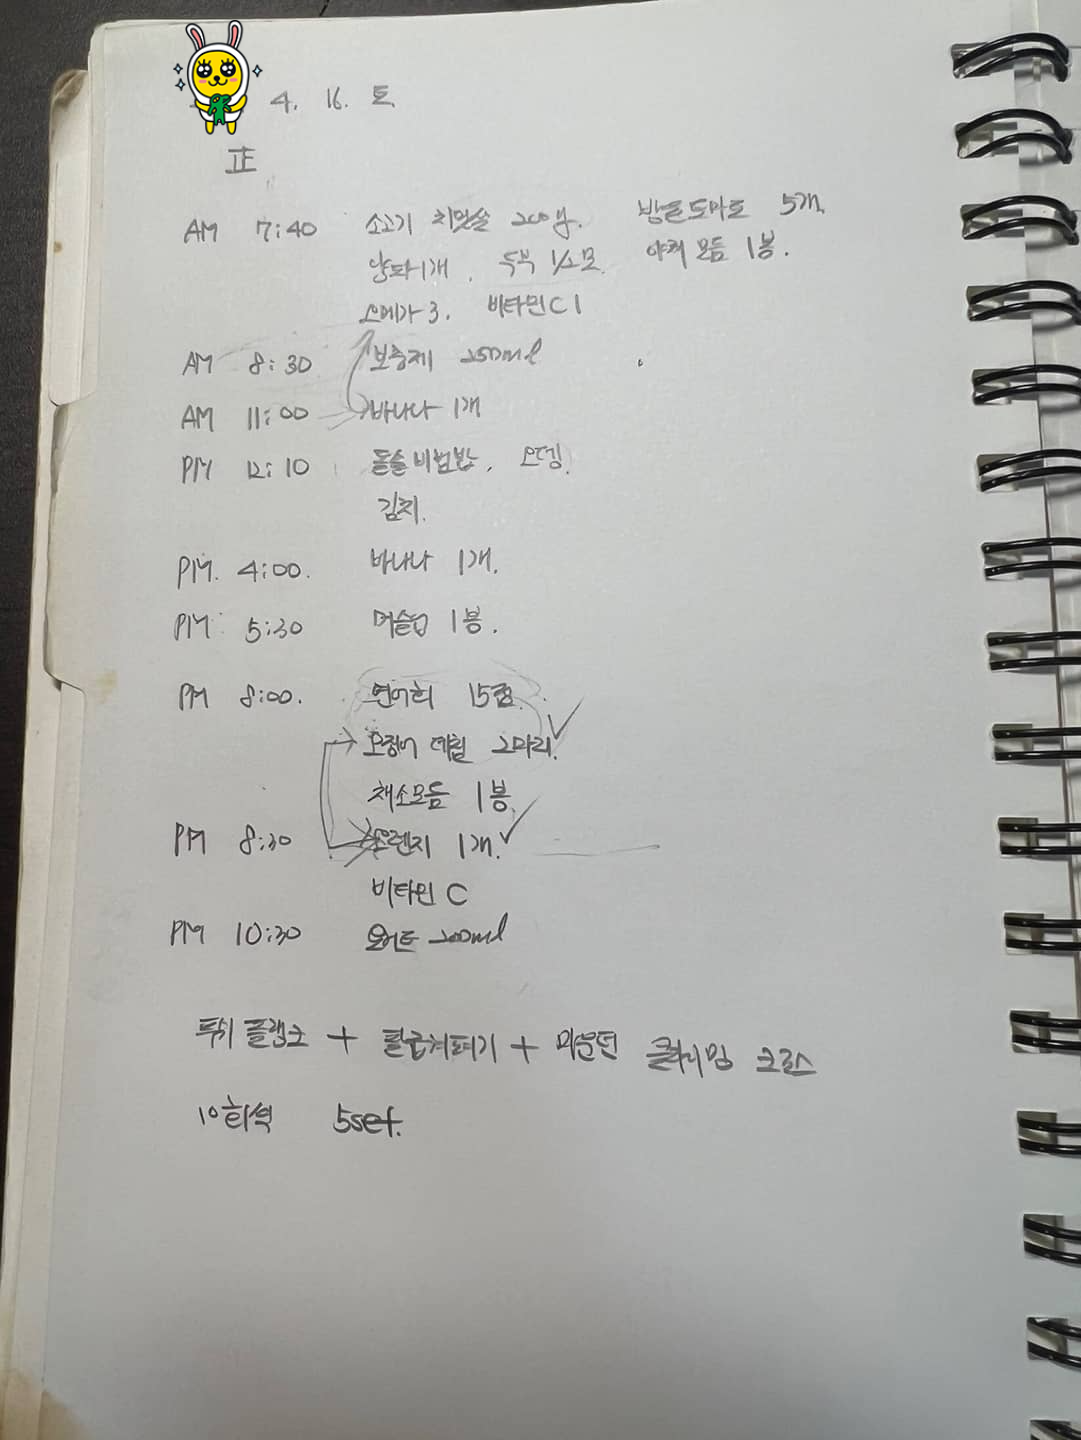 4. 16. 토
正
AM 7:40 소고기 치맛살 200g. 방울토마토 5개.
양파 1개. 두부 1/2모. 야채 모듬 1봉.
오메가 3. 비타민 C 1
AM 8:30 보충제 250ml
AM 11:00 바나나 1개
PM 12:10 돌솥비빔밥. 오뎅.
김치.
PM. 4:00. 바나나 1개.
PM 5:30 머슬업 1봉.
PM 8:00. 연어회 15점.
오징어 데침 2마리.
채소모듬 1봉.
PM 8:30 오렌지 1개.
비타민 C
PM 10:30 요거트 200ml
푸쉬 플랭크 + 팔굽혀펴기 + 마운틴 클라이밍 크로스
10회씩 5set.